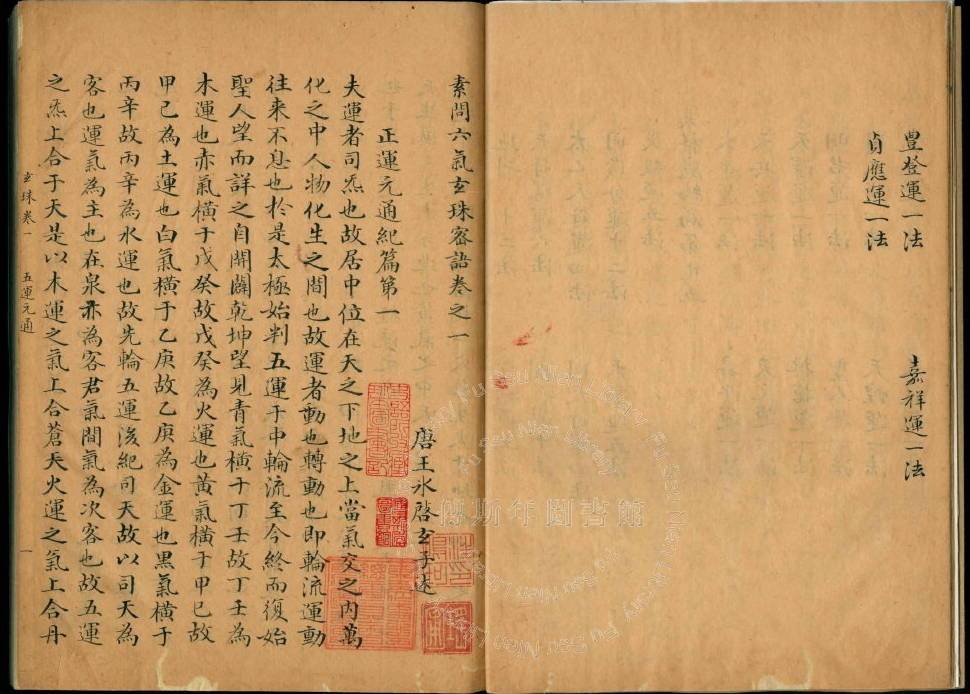 豊登運一法 嘉祥運一法
貞應運一法
素問六氣玄珠密語卷之一
唐王氷啓玄子述
正運元通紀篇第一
夫運者司炁也故居中位在天之下地之上當氣交之内萬
化之中人物化生之間也故運者動也轉動也即輪流運動
往來不息也於是太極始判五運于中輪流至今終而復始
聖人望而詳之自開闢乾坤望見青氣橫于丁壬故丁壬為
木運也赤氣橫于戊癸故戊癸為火運也黃氣橫于甲巳故
甲巳為土運也白氣橫于乙庚故乙庚為金運也黑氣橫于
丙辛故丙辛為水運也故先輪五運後紀司天故以司天為
客也運氣為主也在泉亦為客君氣間氣為次客也故五運
之炁上合于天是以木運之氣上合蒼天火運之氣上合丹
玄珠卷一 五運元通 一
傅斯年圖書館
Fu Ssu-Nien Library